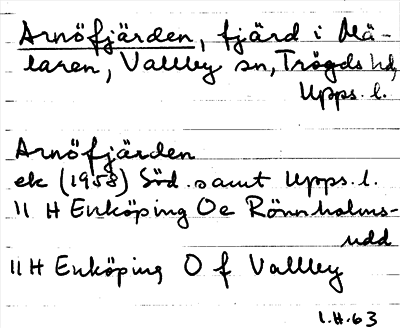 Arnöfjärden, fjärd i Mä-
laren, Vallby sn, Trögds hd,
Upps. l.
Arnöfjärden
ek (1958) Söd. samt Upps. l.
11 H Enköping Oe Rönnholms-
udd
11 H Enköping O f Vallby
1.H.63